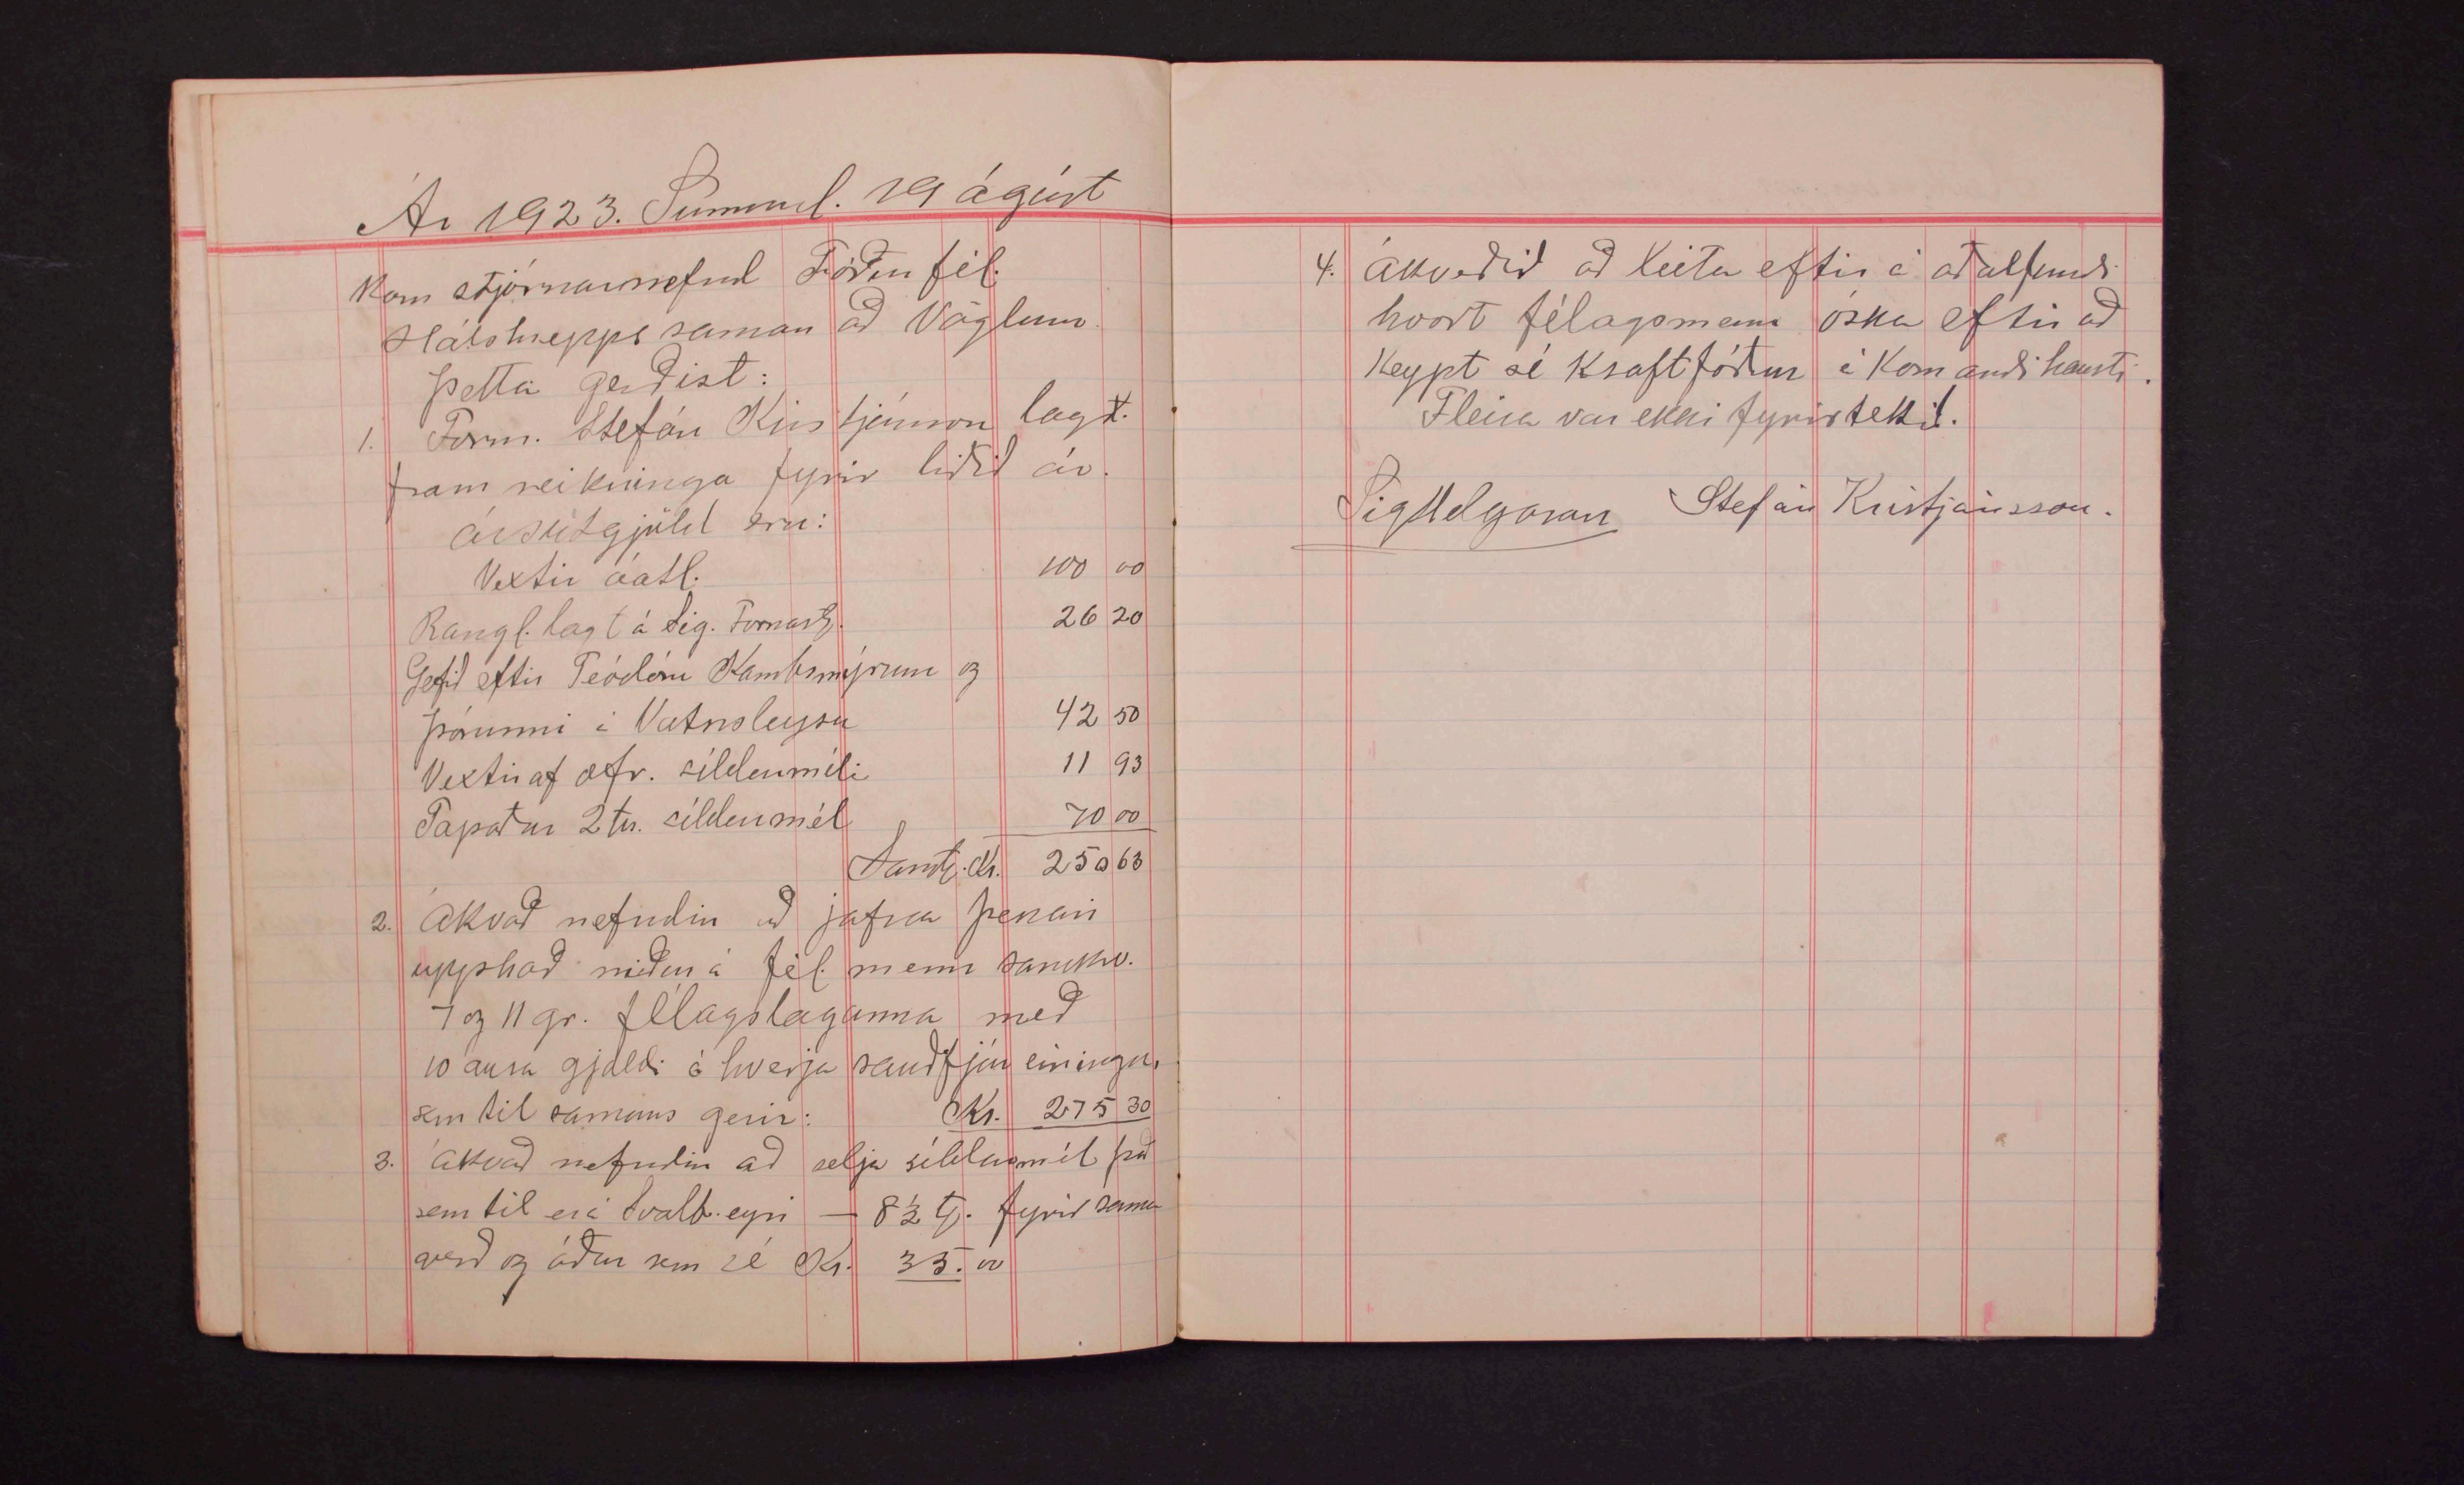 Ár 1923. Sunnud. 19 ágúst
Kom stjórnarnefnd Fóðurfél.
Hálshrepps saman að Vöglum.
Þetta gerðist:
1. Form. Stefán Kristjánson lagt.
fram reikninga fyrir liðið ár.
ársútgjöld eru:
Vextir óatl. 100 00
Rangl. lagt á Sig. Fornast. 26 20
Gefið eftir Teódóru Kambsmýrum og
Þórunni á Vatnsleysu 42 50
Vextir af ofr. síldarméli 11 93
Tapaðar 2 tn. síldarmél 70 00
Samt. Kr. 250 63
2. Ákvað nefndin að jafna þenan
upphað niður á fél. menn samkv.
7 og 11 gr. félagslaganna með
10 aura gjaldi á hverja sauðfjár einingu,
sem til samans gerir: Kr. 275 30
3. Ákvað nefndin að selja síldarmél það
sem til er á Svalb.eyri — 8 ½ t. fyrir sama
verð og áður sem sé Kr. 35.00
4. Ákveðið að leita eftir á aðalfundi
hvort félagsmenn óska eftir að
keypt sé kraftfóður á komandi hausti.
Fleira var ekki fyrirtekið.
Stefán Kristjánsson.